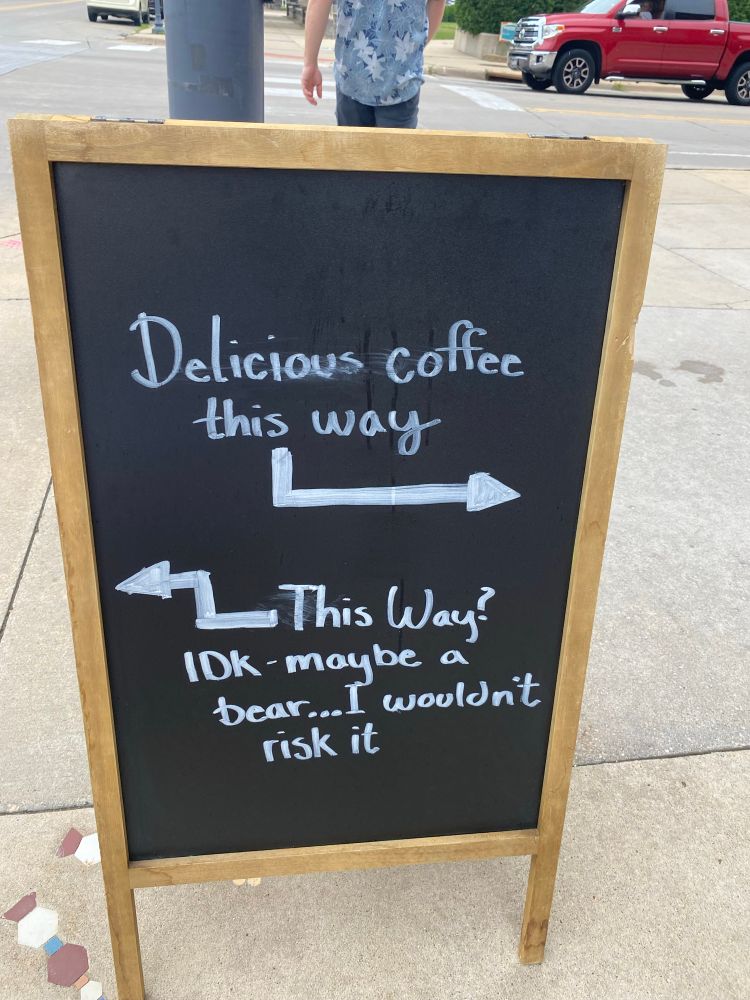 Delicious coffee
this way
This Way?
IDK - maybe a
bear... I wouldn't
risk it